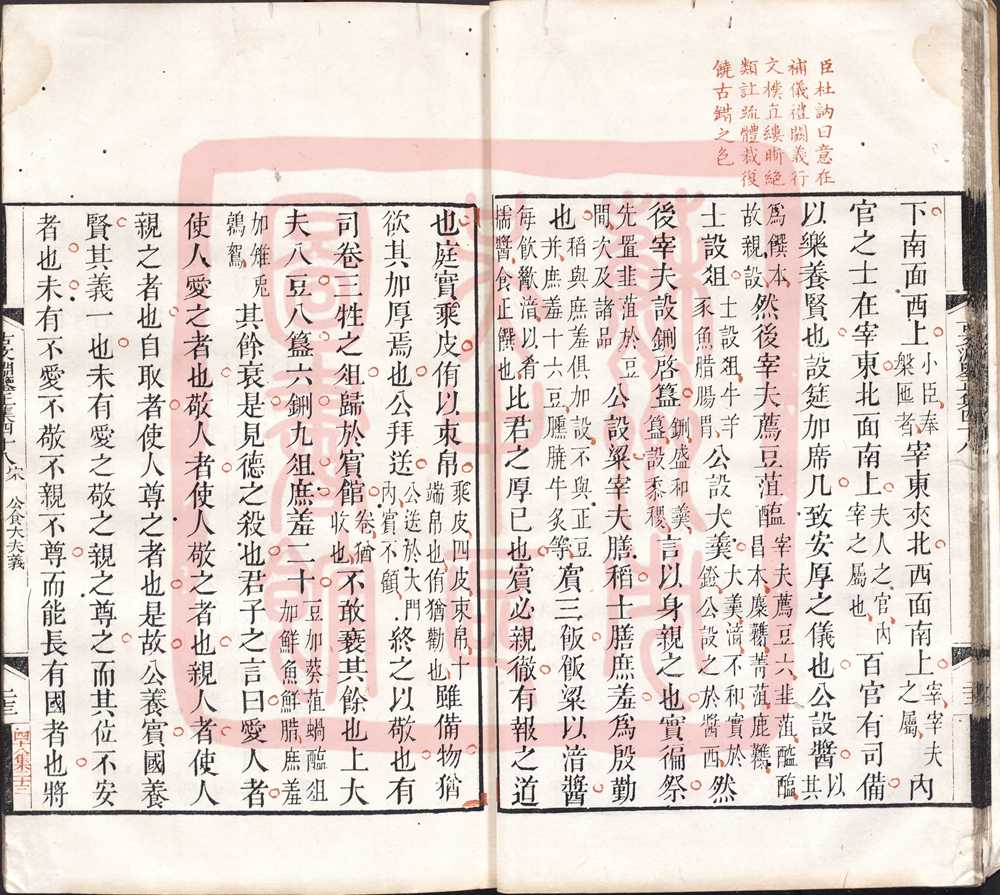 臣杜訥曰意在
補儀禮闕義行
文樸直縷晰絕
類註疏體裁復
饒古錯之色
下南面西上小臣奉槃匜者宰東夾北西面南上宰宰夫之屬內
官之士在宰東北面南上夫人之官內宰之屬也百官有司備
以樂養賢也設筵加席几致安厚之儀也公設醬以其
爲饌本故親設然後宰夫薦豆菹醢宰夫薦豆六韭菹醓醢昌本麋臡菁菹鹿臡
士設俎士設俎牛羊豕魚腊腸胃公設大羹大羹湆不和實於鐙公設之於醬西然
後宰夫設鉶啓簋鉶盛和羹簋設黍稷言以身親之也賓徧祭
先置韭菹於豆間次及諸品公設粱宰夫膳稻士膳庶羞爲殷勤
也稻與庶羞俱加設不與正豆并庶羞十六豆膷膮牛炙等賓三飯飯粱以湆醬
每飲歠湆以肴擩醬食正饌也比君之厚已也賓必親徹有報之道
也庭實乘皮侑以束帛乘皮四皮束帛十端帛也侑猶勸也雖備物猶
欲其加厚焉也公拜送公送於大門內賓不顧終之以敬也有
司卷三牲之俎歸於賓館卷猶收也不敢褻其餘也上大
夫八豆八簋六鉶九俎庶羞二十豆加葵菹蝸醢俎加鮮魚鮮腊庶羞
加雉兎鶉鴽其餘衰是見德之殺也君子之言曰愛人者
使人愛之者也敬人者使人敬之者也親人者使人
親之者也自取者使人尊之者也是故公養賓國養
賢其義一也未有愛之敬之親之尊之而其位不安
者也未有不愛不敬不親不尊而能長有國者也將
公食大夫義